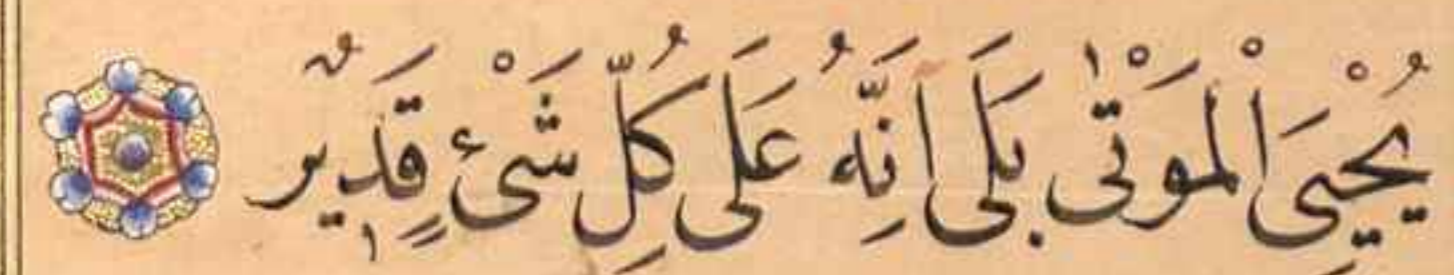 يُحْيِيَ الْمَوْتٰى بَلَى اِنَّهُ عَلَى كُلِّ شَىْءٍ قَدِيرٌ